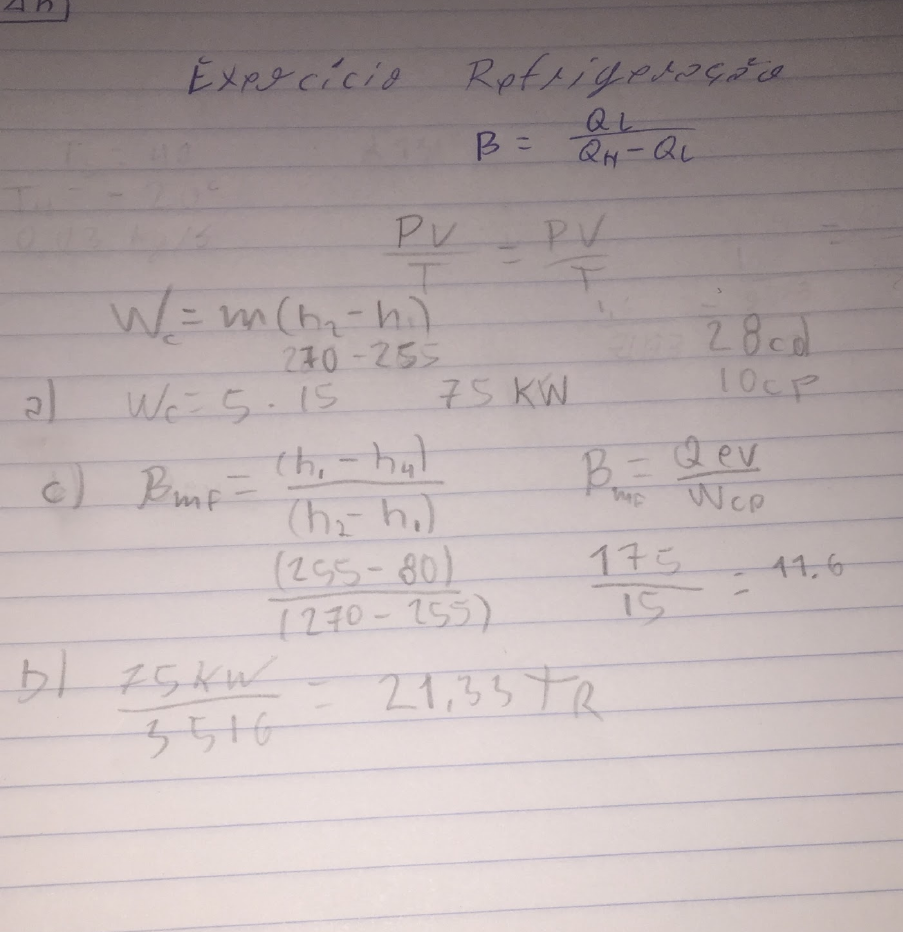 Exercício Refrigeração
B = QL / QH - QL
PV / T = PV / T
Wc = m(h2 - h1)
270 - 255
28cd
10cp
a) Wc = 5 . 15 75 KW
c) Bmf = (h1 - h4) / (h2 - h1) Bmf = Qev / Wcp
(255 - 80) / (270 - 255) 175 / 15 = 11.6
b) 75 KW / 3516 = 21,33 TR